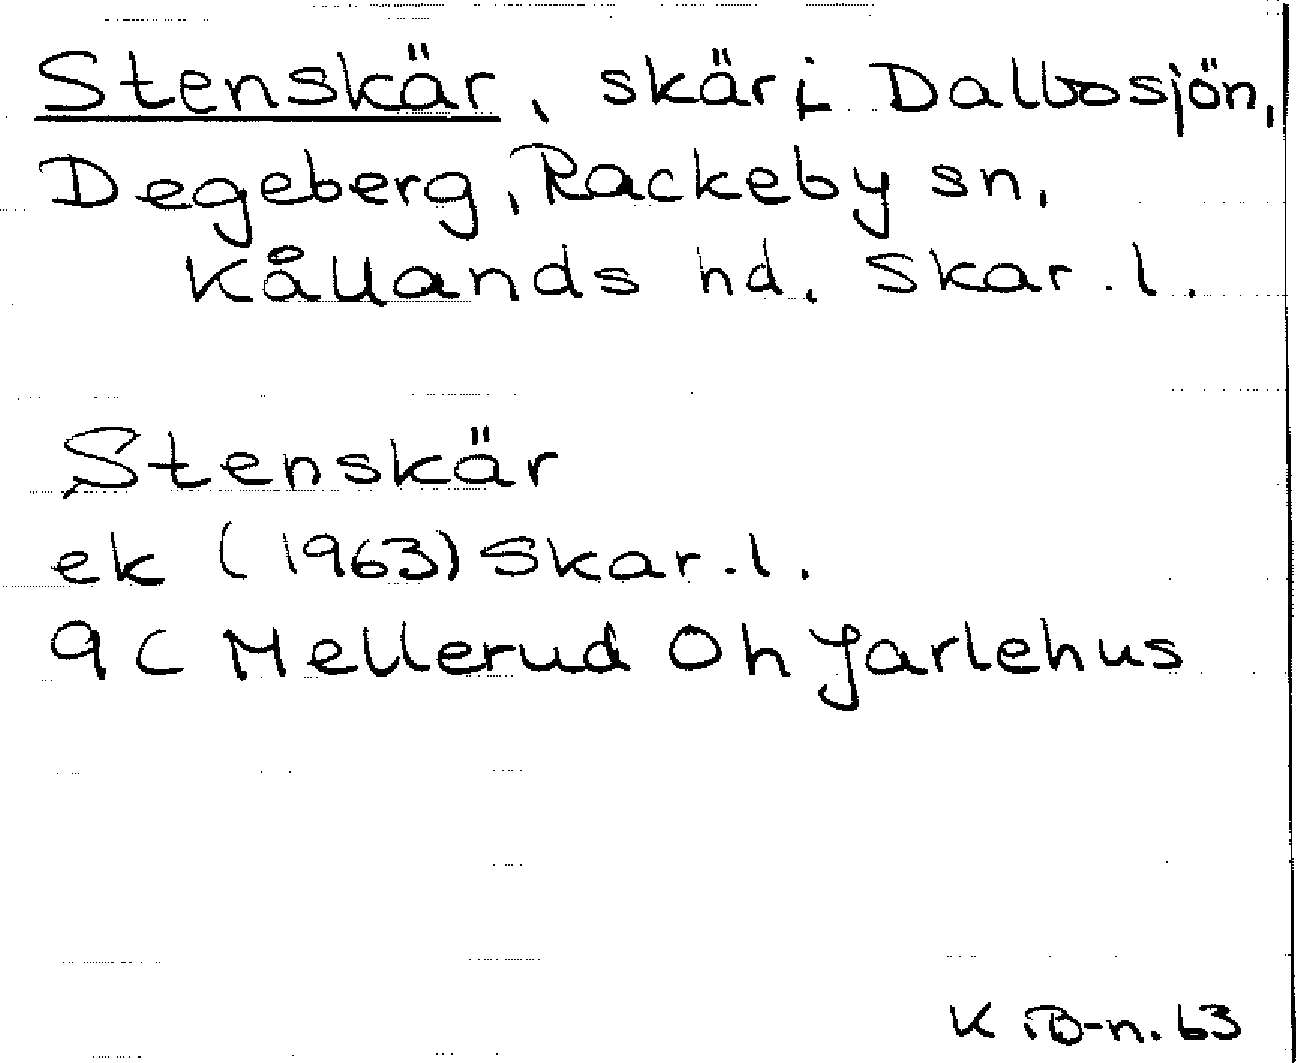 Stenskär, skär i Dalbosjön,
Degeberg, Rackeby sn,
Kållands hd, Skar. l.
Stenskär
ek (1963) Skar. l.
9C Mellerud Oh Jarlehus
K n. 63